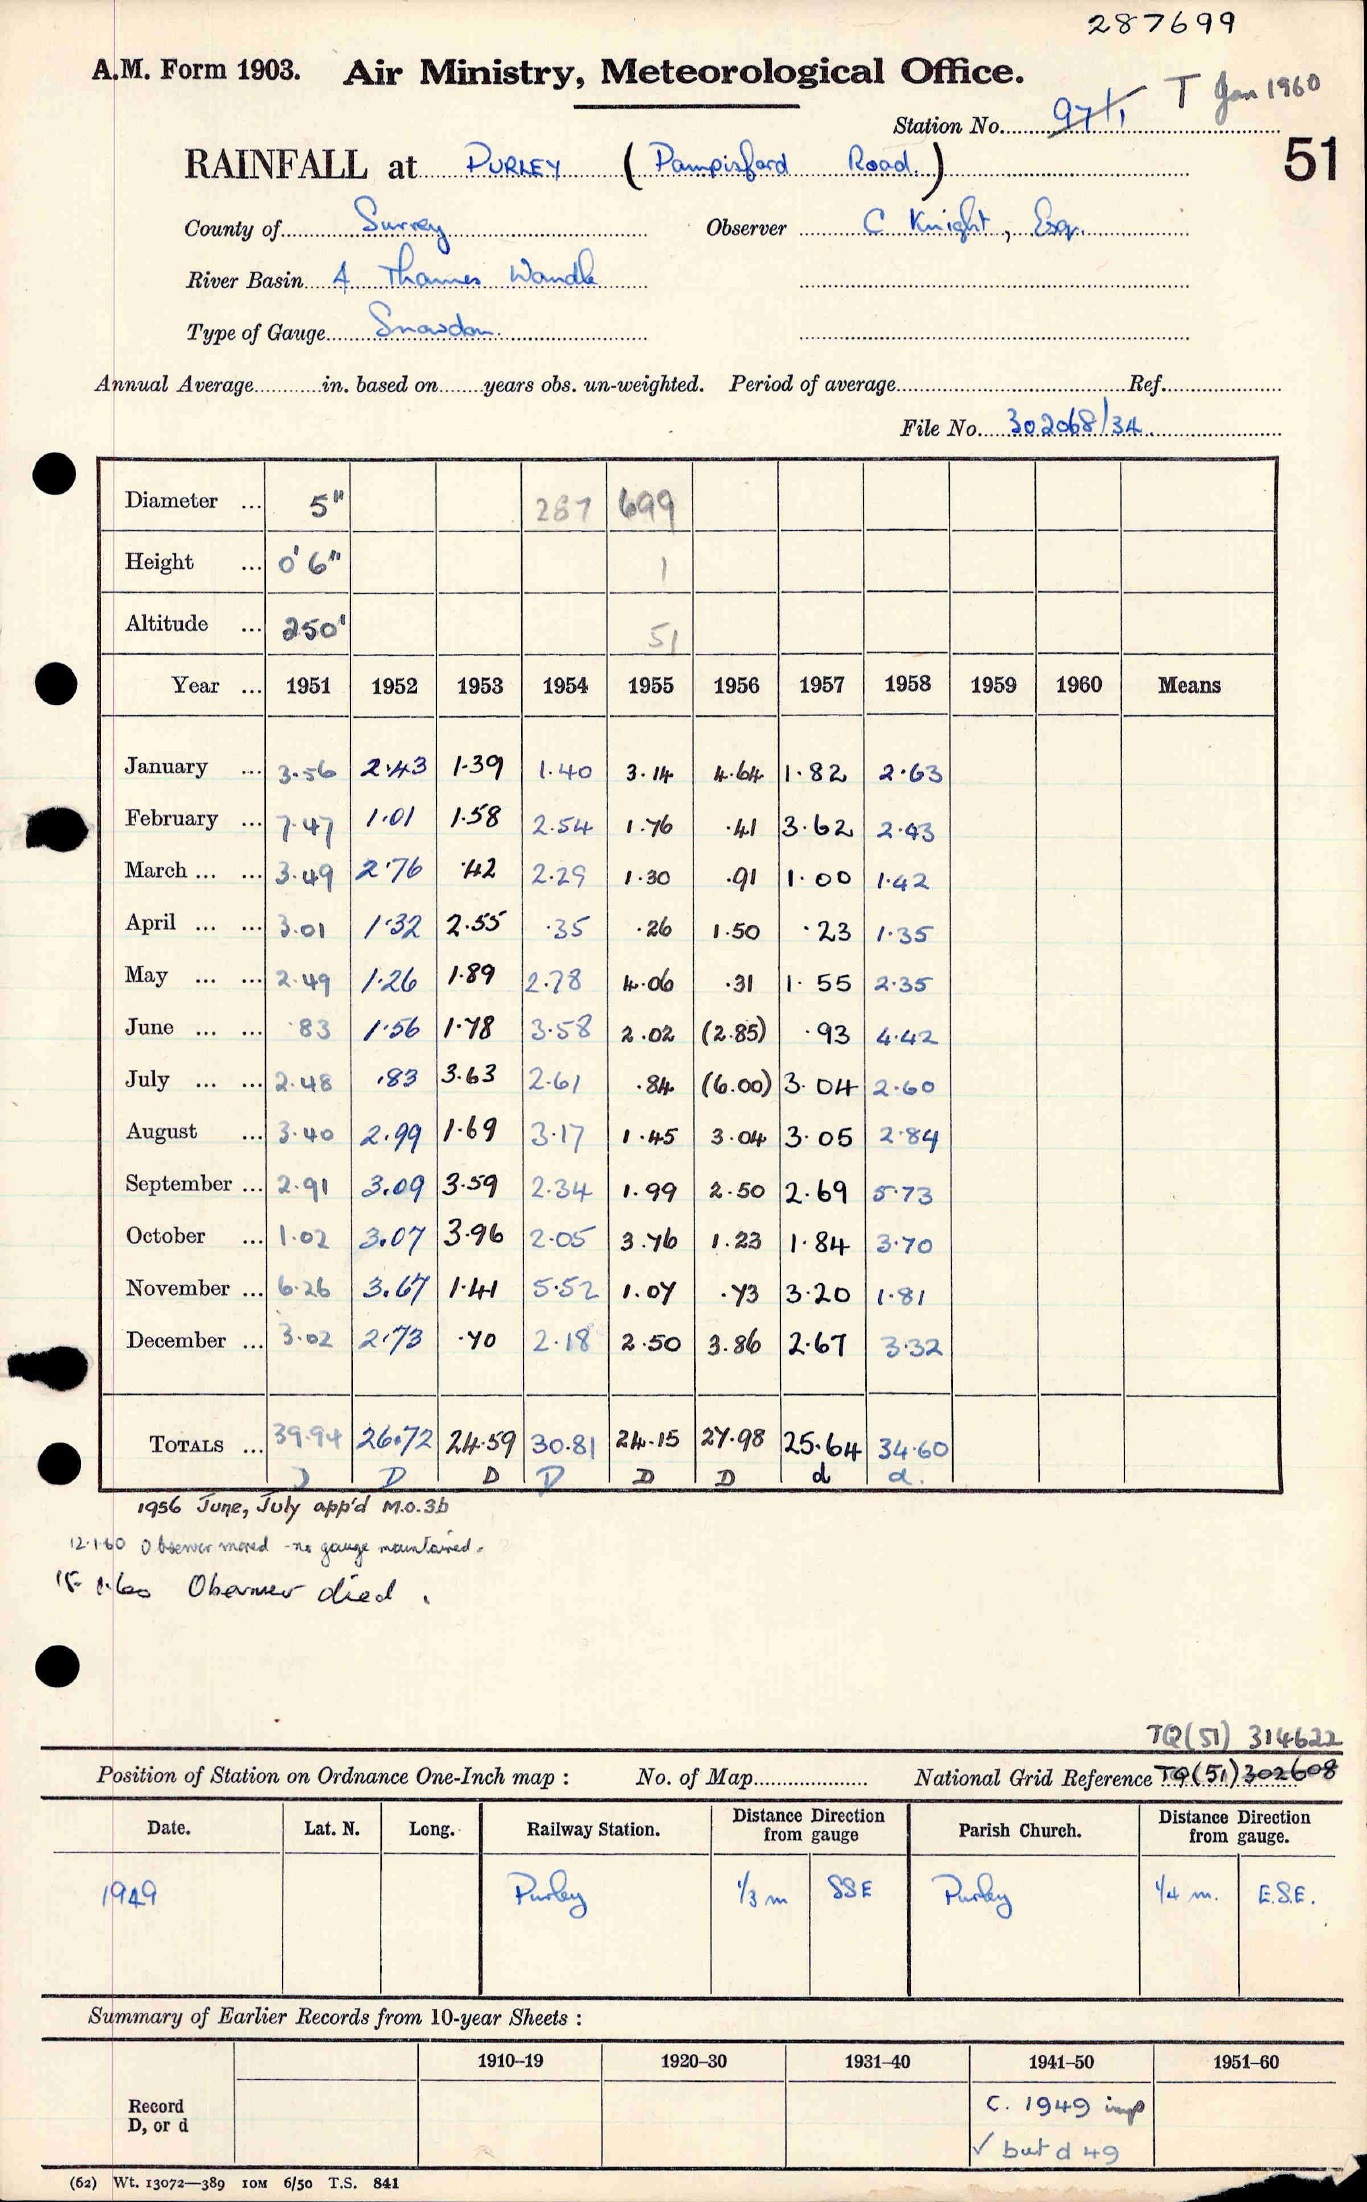 287699
A.M. Form 1903. Air Ministry, Meteorological Office.
T Jan 1960
Station No. 97/1
51
RAINFALL at PURLEY (Pampisford Road.)
County of Surrey Observer C Knight, Esq.
River Basin A Thames Wandle
Type of Gauge Snowdon.
Annual Average in. based on years obs. un-weighted. Period of average Ref.
File No. 302068/34
Diameter ... 5" 287 699
Height ... 0' 6" 1
Altitude ... 250' 51
Year ... 1951 1952 1953 1954 1955 1956 1957 1958 1959 1960 Means
January ... 3.56 2.43 1.39 1.40 3.14 4.64 1.82 2.63
February ... 7.47 1.01 1.58 2.54 1.76 .41 3.62 2.43
March ... ... 3.49 2.76 .42 2.29 1.30 .91 1.00 1.42
April ... ... 3.01 1.32 2.55 .35 .26 1.50 .23 1.35
May ... ... 2.49 1.26 1.89 2.78 4.06 .31 1.55 2.35
June ... ... .83 1.56 1.78 3.58 2.02 (2.85) .93 4.42
July ... ... 2.48 .83 3.63 2.61 .84 (6.00) 3.04 2.60
August ... 3.40 2.99 1.69 3.17 1.45 3.04 3.05 2.84
September ... 2.91 3.09 3.59 2.34 1.99 2.50 2.69 5.73
October ... 1.02 3.07 3.96 2.05 3.76 1.23 1.84 3.70
November ... 6.26 3.67 1.41 5.52 1.07 .73 3.20 1.81
December ... 3.02 2.73 .70 2.18 2.50 3.86 2.67 3.32
TOTALS ... 39.94 26.72 24.59 30.81 24.15 27.98 25.64 34.60
D D D D D D d d.
1956 June, July app'd M.O.3b
12.1.60 Observer moved - no gauge maintained.
Observer died.
TQ(51) 314622
Position of Station on Ordnance One-Inch map : No. of Map National Grid Reference TQ(51)302608
Date. Lat. N. Long. Railway Station. Distance Direction from gauge Parish Church. Distance Direction from gauge.
1949 Purley 1/3 m SSE Purley 1/4 m. E.S.E.
Summary of Earlier Records from 10-year Sheets :
1910–19 1920–30 1931–40 1941–50 1951–60
Record
D, or d
C. 1949 imp
✓ but d 49
(62) Wt. 13072—389 10M 6/50 T.S. 841